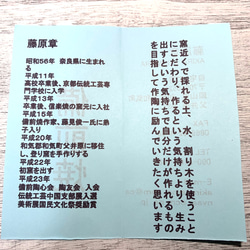 藤原章
昭和56年 奈良県に生まれる
平成11年
高校卒業後、京都伝統工芸専門学校に入学
平成13年
卒業後、信楽焼の窯元に入社
平成15年
備前焼作家、藤見俊一氏に弟子入り
平成20年
和気郡和気町父井原に移住し、登り窯を手作りする
平成22年
初窯を出す
平成23年
備前陶心会 陶友会 入会
伝統工芸中国支部展入選
美術展国民文化祭奨励賞
窯近くで採れる土、水、割り木を使うこと
にこだわり、作るという気持ちより、生み
出すという気持ちで自分だけしか作れないもの
を目指して作陶に励んでいきたいと思います